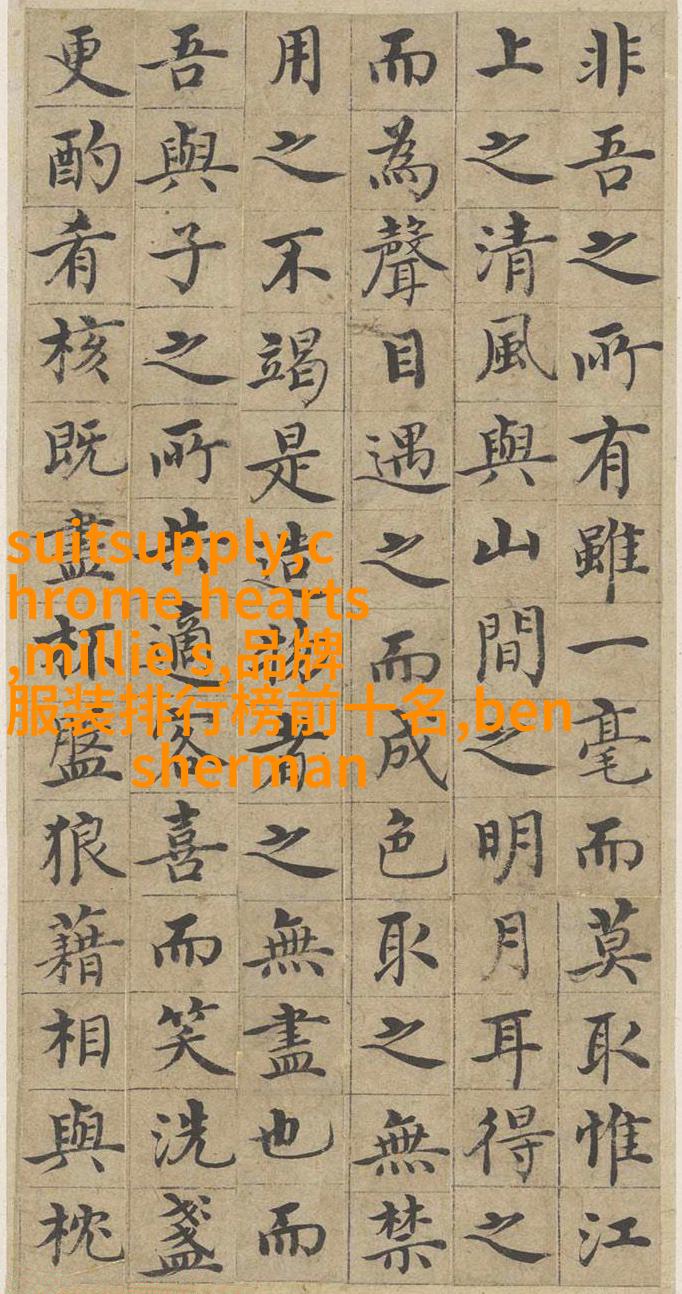 非吾之所有雖一毫而莫取惟江
上之清風與山間之明月耳得之
而為聲目遇之而成色取之無禁
用之不竭是造物者之無盡也而
吾與子之所共適客喜而笑洗盞
更酌肴核既盡杯盤狼藉相與枕
suitsupply,c
hrome hearts
,millie's,品牌
服装排行榜前十名,ben
sherman